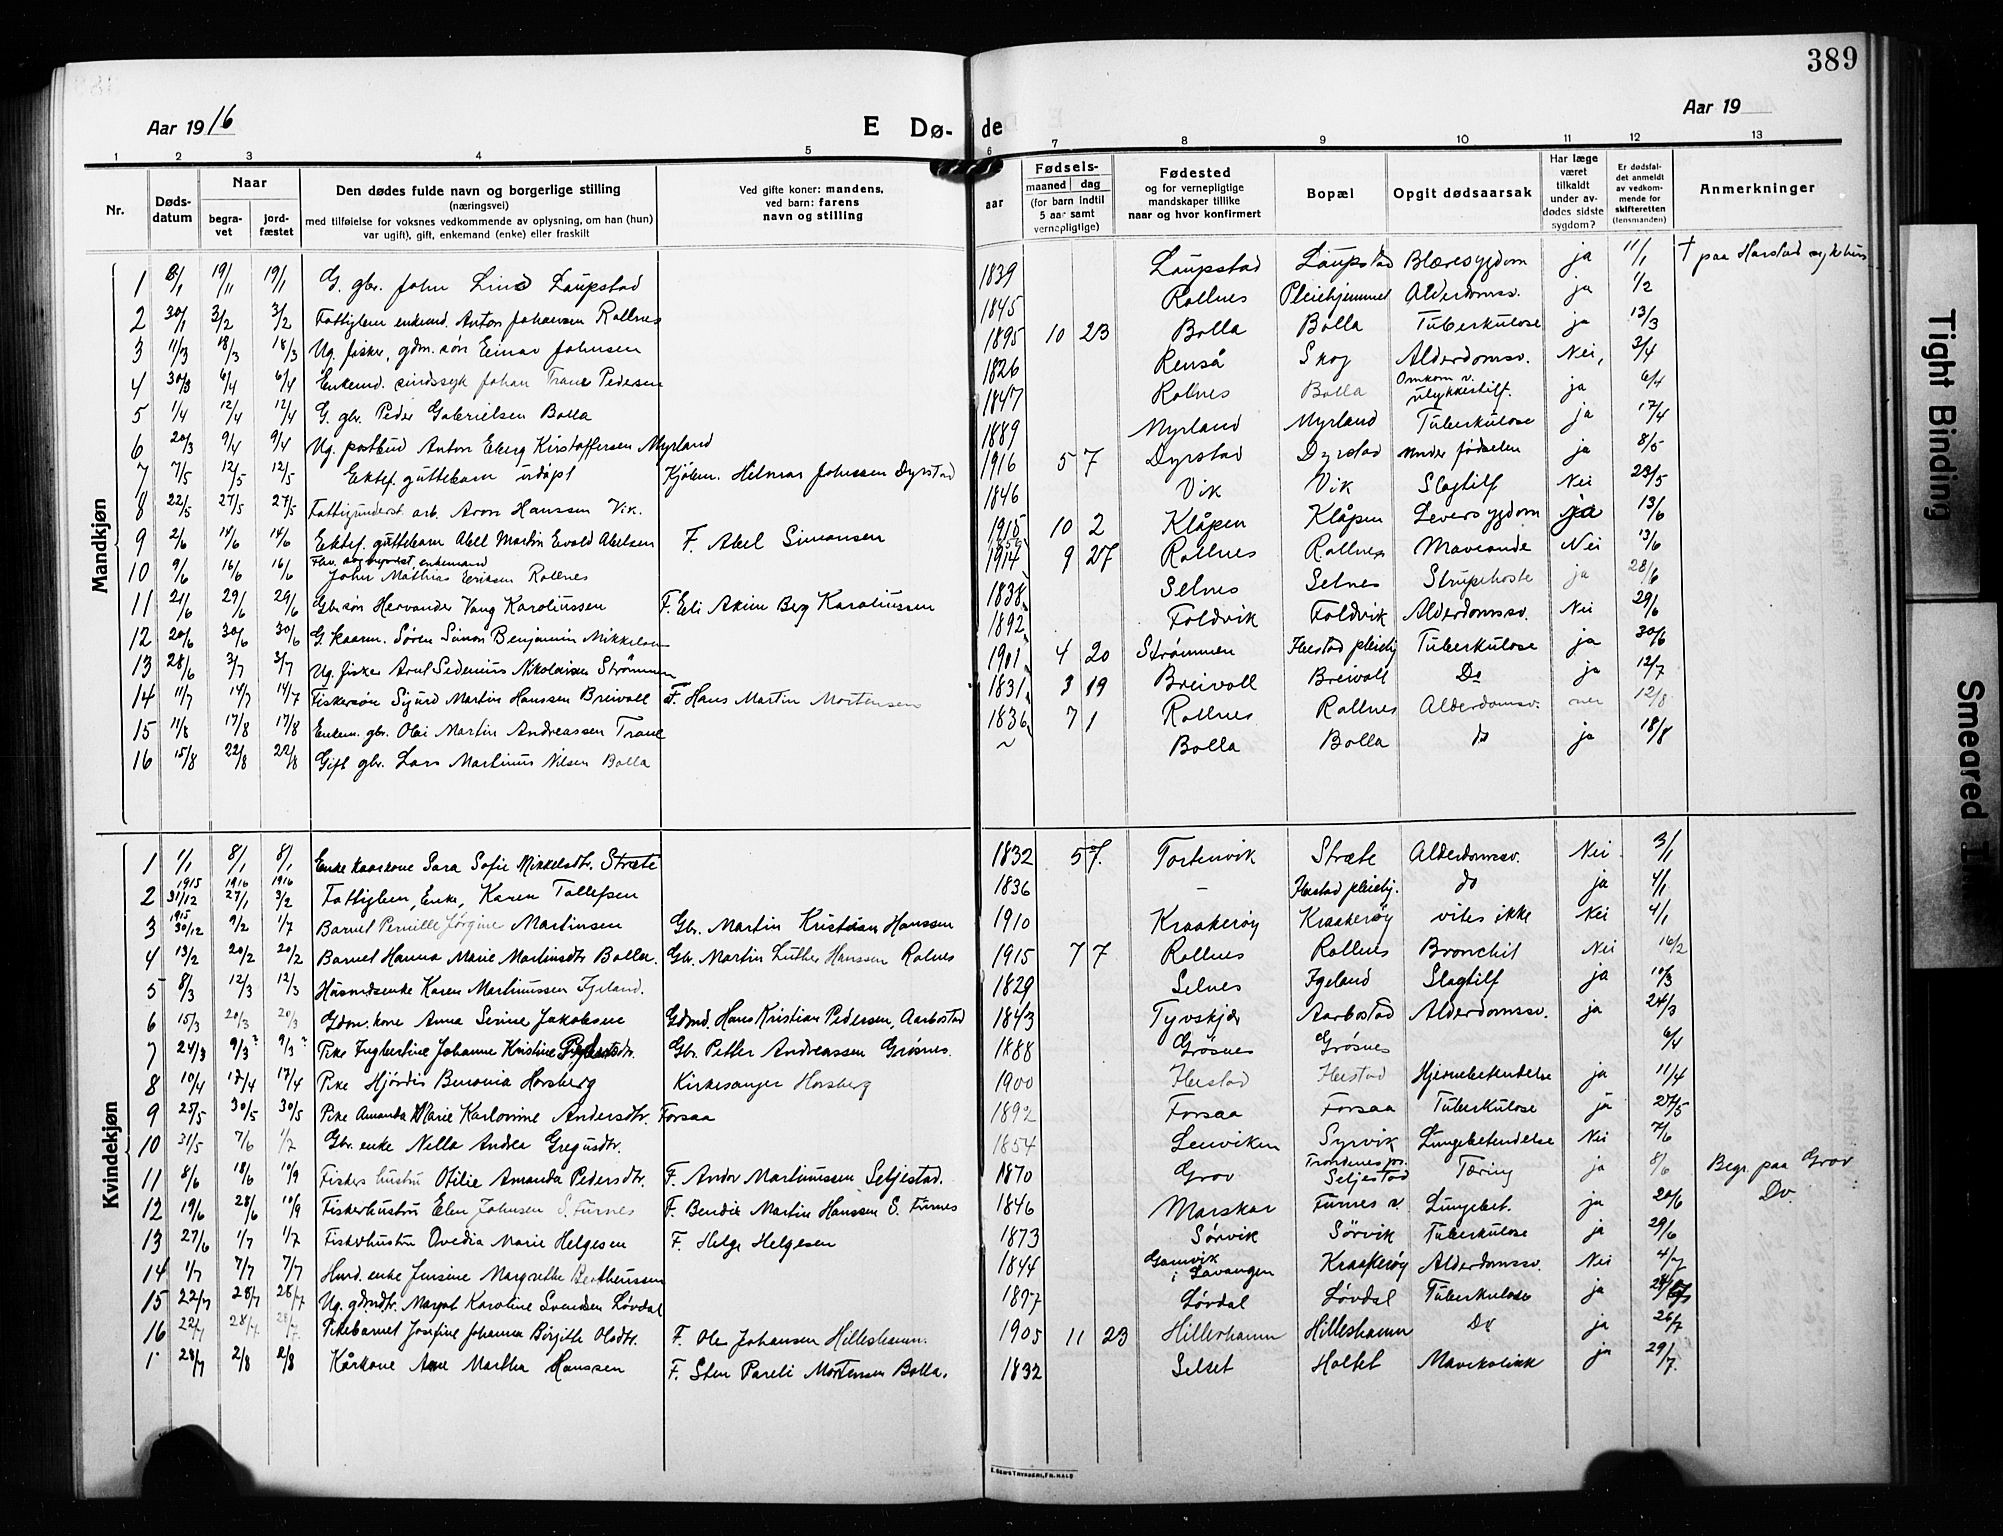 389
Aar 1916
E Dø- de
Aar 19
1 2 3 4 5 6 7 8 9 10 11 12 13
Nr.
Døds-datum
Naar
begra-vet
jord-fæstet
Den dødes fulde navn og borgerlige stilling
(næringsvei)
med tilføielse for voksnes vedkommende av oplysning, om han (hun)
var ugift), gift, enkemand (enke) eller fraskilt
Ved gifte koner: mandens,
ved barn: farens
navn og stilling
Fødsels-
aar
maaned dag
(for barn indtil
5 aar samt
vernepligtige)
Fødested
og for vernepligtige
mandskaper tillike
naar og hvor konfirmert
Bopæl
Opgit dødsaarsak
Har læge
været
tilkaldt
under av-
dødes sidste
sygdom?
Er dødsfal-
det anmeldt
av vedkom-
mende for
skifteretten
(lensmanden)
Anmerkninger
Mandkjøn
1 8/1 19/1 19/1 G. gbr. John Lind Laupstad 1839 Laupstad Laupstad Blæresygdom ja 11/1 † paa Harstad sykehus
2 30/1 3/2 3/2 Fattiglem enkemd. Anton Johansen Rollnes 1845 Rollnes Pleiehjemmet Alderdomssv. ja 1/2
3 11/3 18/3 18/3 Ug. fisker, gdm. søn Einar Johnsen 1895 10 23 Bolla Bolla Tuberkulose ja 13/3
4 30/3 6/4 6/4 Enkemd. sindssyk Johan Trane Pedersen 1826 Renså Skog Alderdomssv. Nei, 3/4
5 1/4 12/4 12/4 G. gbr. Peder Gabrielsen Bolla 1847 Rolnes Bolla Omkom v. ulykkestilf. ja 6/4
6 20/3 9/4 9/4 Ug. postbud Anton Eberg Kristoffersen Myrland 1889 Myrland Myrland Tuberkulose ja 17/4
7 7/5 12/5 12/5 Ektef. guttebarn udøpt Kjøbm. Hilmar Johnsen Dyrstad 1916 5 7 Dyrstad Dyrstad under fødselen ja 8/5
8 22/5 27/5 27/5 Fattigunderst. arb. Aron Hanssen Vik. 1846 Vik Vik Slagtilf Nei 23/5
9 2/6 14/6 14/6 Ektef. guttebarn Abel Martin Evald Abelsen F. Abel Simonsen 1915 10 2 Klåpen Klåpen Leversygdom ja 13/6
10 9/6 16/6 16/6 enkemand John Mathias Eriksen Rollnes 1914 9 27 Rollnes Rollnes Maveonde Nei 13/6
11 21/6 29/6 29/6 Gbr.søn Hervander Vang Karoliussen F. Eli Akim Berg Karoliussen 1838 Selnes Selnes Strupehoste ja 28/6
12 20/6 30/6 30/6 G. kaarm. Søren Simon Benjamin Mikkelsen 1892 Foldvik Foldvik Alderdomssv. Nei 29/6
13 28/6 3/7 3/7 Ug. fisker Arnt Sedenius Nikolaisen Strømmen 1901 4 20 Strømmen Ibestad pleiehj Tuberkulose ja 30/6
14 11/7 14/7 14/7 Fiskersøn Sigurd Martin Hanssen Breivoll F. Hans Martin Mortensen 1831 3 19 Breivoll Breivoll Do ja 12/7
15 11/8 17/8 17/8 Enkem. gbr. Olai Martin Andreassen Trane 1836 7 1 Rollnes Rollnes Alderdomssv. nei 12/8
16 15/8 22/8 22/8 Gift gbr. Lars Martinus Nilsen Bolla ~ Bolla Bolla do ja 18/8
Kvindekjøn
1 1/1 8/1 8/1 Enke kaarkone Sara Sofie Mikkelsdtr. Stræte 1832 5 7. Tortenvik Stræte Alderdomssv. Nei 3/1
2 1915 31/12 1916 27/1 1916 3/2 Fattiglem, Enke, Karen Tollefsen 1836 – Ibestad pleiehj. do ja 4/1
3 1915 30/12 9/2 1/7 Barnet Pernille Jørgine Martinsen Gbr. Martin Kristian Hanssen 1910 Kraakerøy Kraakerøy vites ikke Nei 4/1
4 13/2 20/2 20/2 Barnet Hanna Marie Martinsdtr Bolla. Gbr. Martin Luther Hanssen Rolnes 1915 7 7 Rollnes Rollnes Bronchit Nei 16/2
5 8/3 12/3 12/3 Husmdsenke Karen Martinussen Igeland. 1829 Selnes Igeland Slagtilf ja 10/3
6 15/3 20/3 20/3 Gdm. kone Anna Serine Jakobsen Gdmd. Hans Kristian Pedersen, Aarbostad 1843 Tyvskjær Aarbostad Alderdomssv. ja 24/3
7 24/3 9/3? 9/3? Pike Ingbertine Johanne Kristine Gbr. Petter Andreassen Grøsnes. 1888 Grøsnes Grøsnes 6/4
8 10/4 17/4 17/4 Pike Hjørdis Benonia Horsberg Kirkesanger Horsberg 1900 Ibestad Ibestad Hjernebetendelse ja 11/4
9 25/5 30/5 30/5 Pike Amanda Marie Karlovine Andersdtr. Forsaa 1892 Forsaa Forsaa Tuberkulose ja 27/5
10 31/5 7/6 1/7 Gbr. enke Nella Andrea Gregusdtr. 1854 Lenviken Syrvik Lungebetendelse Nei 7/6
11 8/6 18/6 10/9 Fiskers hustru Otilie Amanda Pedersdtr. F. Andor Martinussen Seljestad. 1870 Grov Trondenes pr. Seljestad Tæring ja 8/6 Begr. paa Grov
12 19/6 28/6 10/9 Fiskerhustru Elen Johnsen S. Furnes F. Bendix Martin Hanssen S. Furnes 1846 Marskar Furnes s. Lungebet. ja 20/6 Do.
13 27/6 1/7 1/7 Fiskerhustru Ovedia Marie Helgesen F. Helge Helgesen 1873 Sørvik Sørvik Tuberkulose ja 29/6
14 1/7 7/7 7/7 Husd. enke Jensine Margrethe Bertheussen 1844 Gamvik i Lavangen Kraakerøy Alderdomssv. Nei 4/7
15 22/7 28/7 28/7 Ug. gdmdtr. Margot Karoline Svendsen Løvdal 1897 Løvdal Løvdal Tuberkulose ja
16 22/7 28/7. 28/7. Pikebarnet Josefine Johanna Birgitte Olsdtr. F. Ole Johansen Hilleshamn. 1905 11 23 Hilleshamn Hilleshamn Do ja 26/7
1 28/7 2/8 2/8 Kårkone Ane Martha Hanssen F. Sten Pareli Mortensen Bolla. 1832 Selset Holtet Mavekolikk ja 29/7.
Tight Binding
Smeared